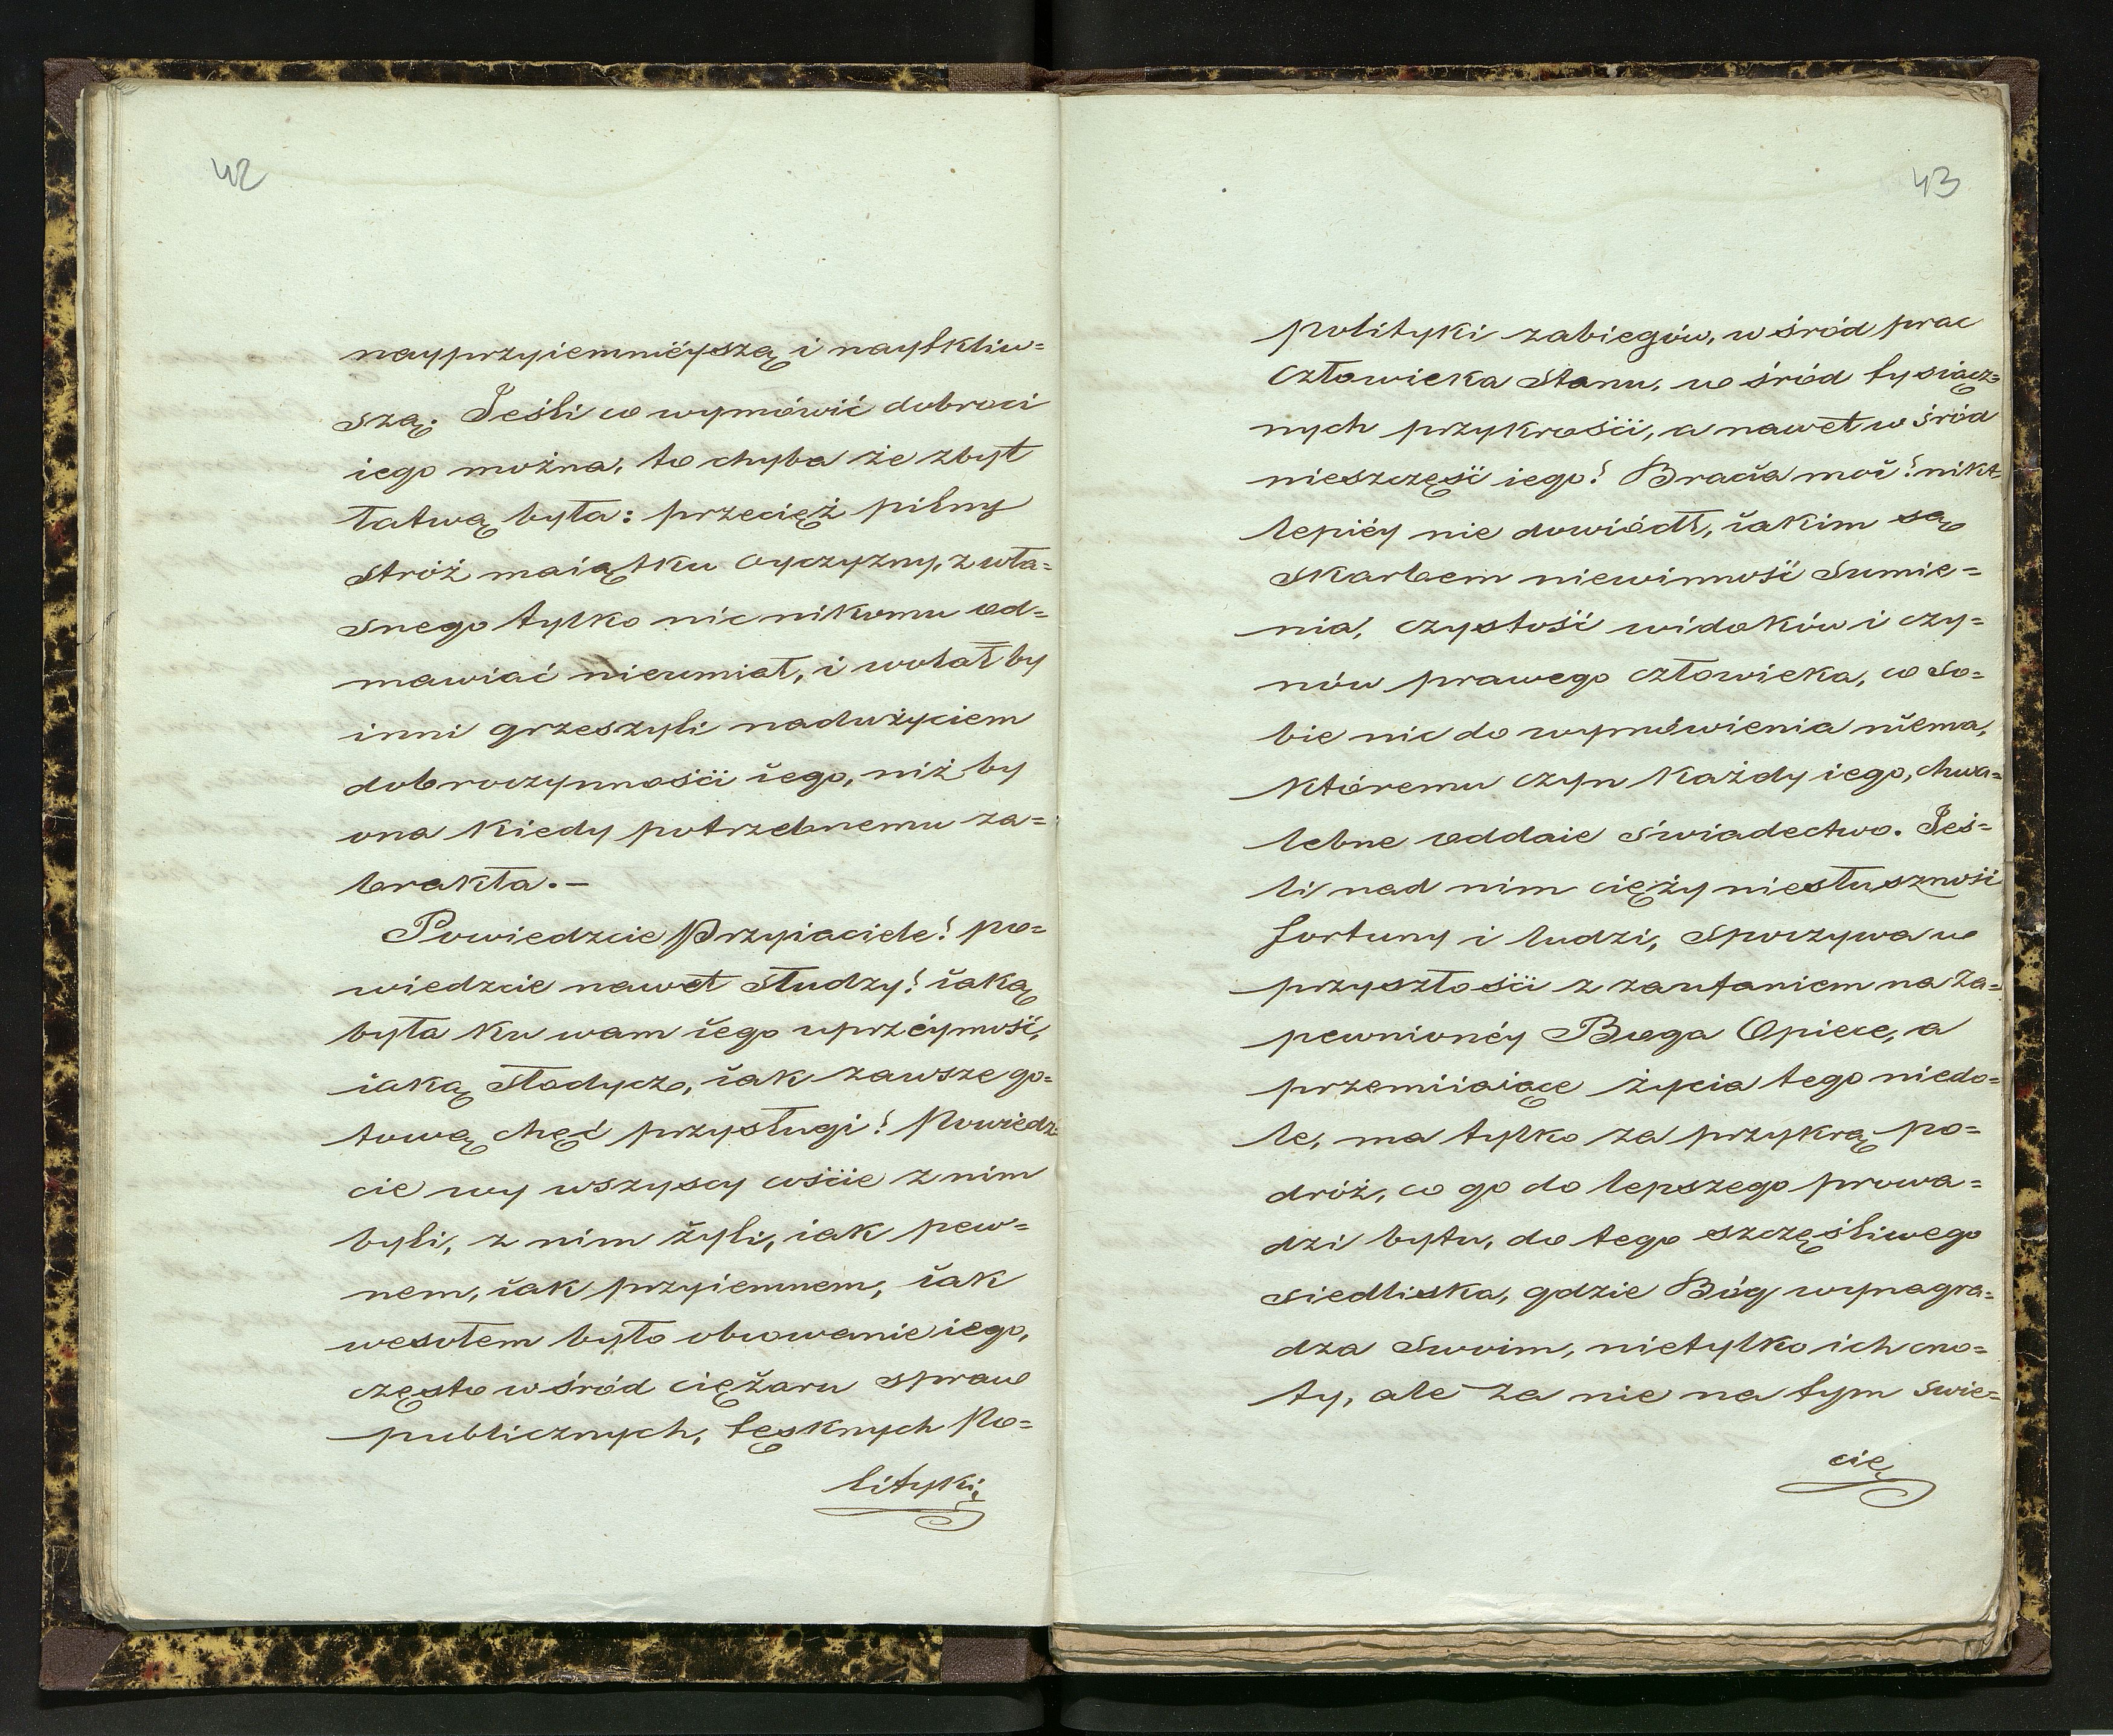 42
nayprzyiemnieyszą i naytkliw=
szą. Jeśli co wymówić dobroci
iego można, to chyba że zbyt
łatwą była: przecięż pilny
stróż maiątku oyczyzny, z wła=
snego tylko nic nikomu od=
mawiać nieumiał, i wolał by
inni grzeszyli nadużyciem
dobroczynności iego, niż by
ona kiedy potrzebnemu za=
brakła.—
Powiedzcie Przyiaciele! po=
wiedzcie nawet słudzy! iaką
była ku wam iego uprzéymość,
iaką słodycz, iak zawsze go=
tową chęć przysługi! Powiedz=
cie wy wszyscy coście z nim
byli, z nim żyli, iak pew=
nem, iak przyiemnem, iak
wesołem było obcowanie iego,
często wśród ciężaru spraw
publicznych, tęsknych Po=
lityki
43
polityki zabiegów, w śród prac
człowieka Stanu, w śród tysiącz=
nych przykrości, a nawet w śród
nieszczęść iego! Bracia moi! nikt
lepiéy nie dowiódł, iakim są
skarbem niewinność Sumie=
nia, czystość widoków i czy=
nów prawego człowieka, co So=
bie nic do wymówienia niema,
któremu czyn każdy iego, chwa=
lebne oddaie świadectwo. Jeś=
li nad nim cięży niesłuszność
fortuny i ludzi, Spoczywa w
przyszłości z zaufaniem na Za=
pewnionéy Boga Opiece, a
przemiiaiące życia tego niedo=
le, ma tylko za przykrą po=
dróż, co go do lepszego prowa=
dzi bytu, do tego szczęśliwego
siedliska, gdzie Bóg wynagra=
dza Swoim, nietylko ich cno=
ty, ale za nie na tym swie=
cie